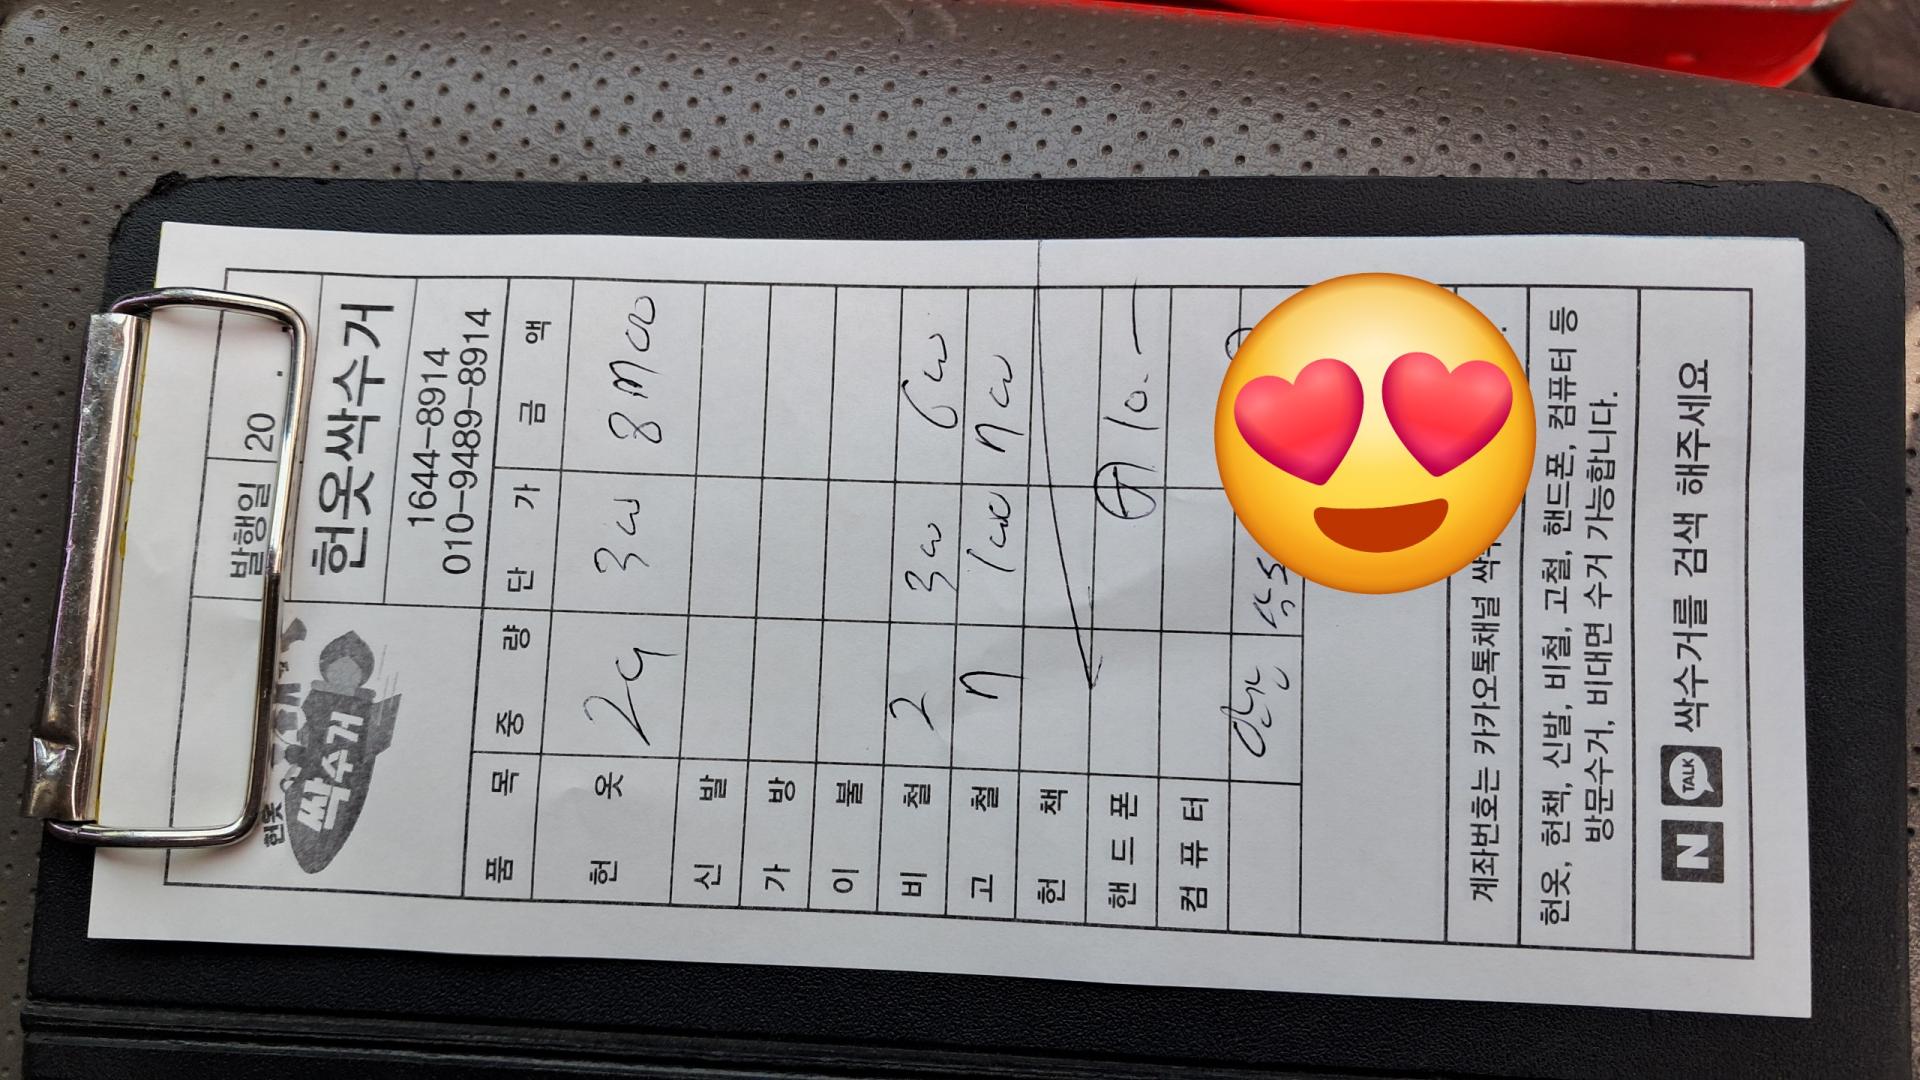 헌옷
싹수거
발행일 20 .
헌옷싹수거
1644-8914
010-9489-8914
품 목 중 량 단 가 금 액
헌 옷 29 300 8700
신 발
가 방
이 불
비 철 2 300 600
고 철 7 100 700
헌 책
핸 드 폰 10.-
컴 퓨 터
계좌번호는 카카오톡채널
헌옷, 헌책, 신발, 비철, 고철, 핸드폰, 컴퓨터 등
방문수거, 비대면 수거 가능합니다.
N TALK 싹수거를 검색 해주세요